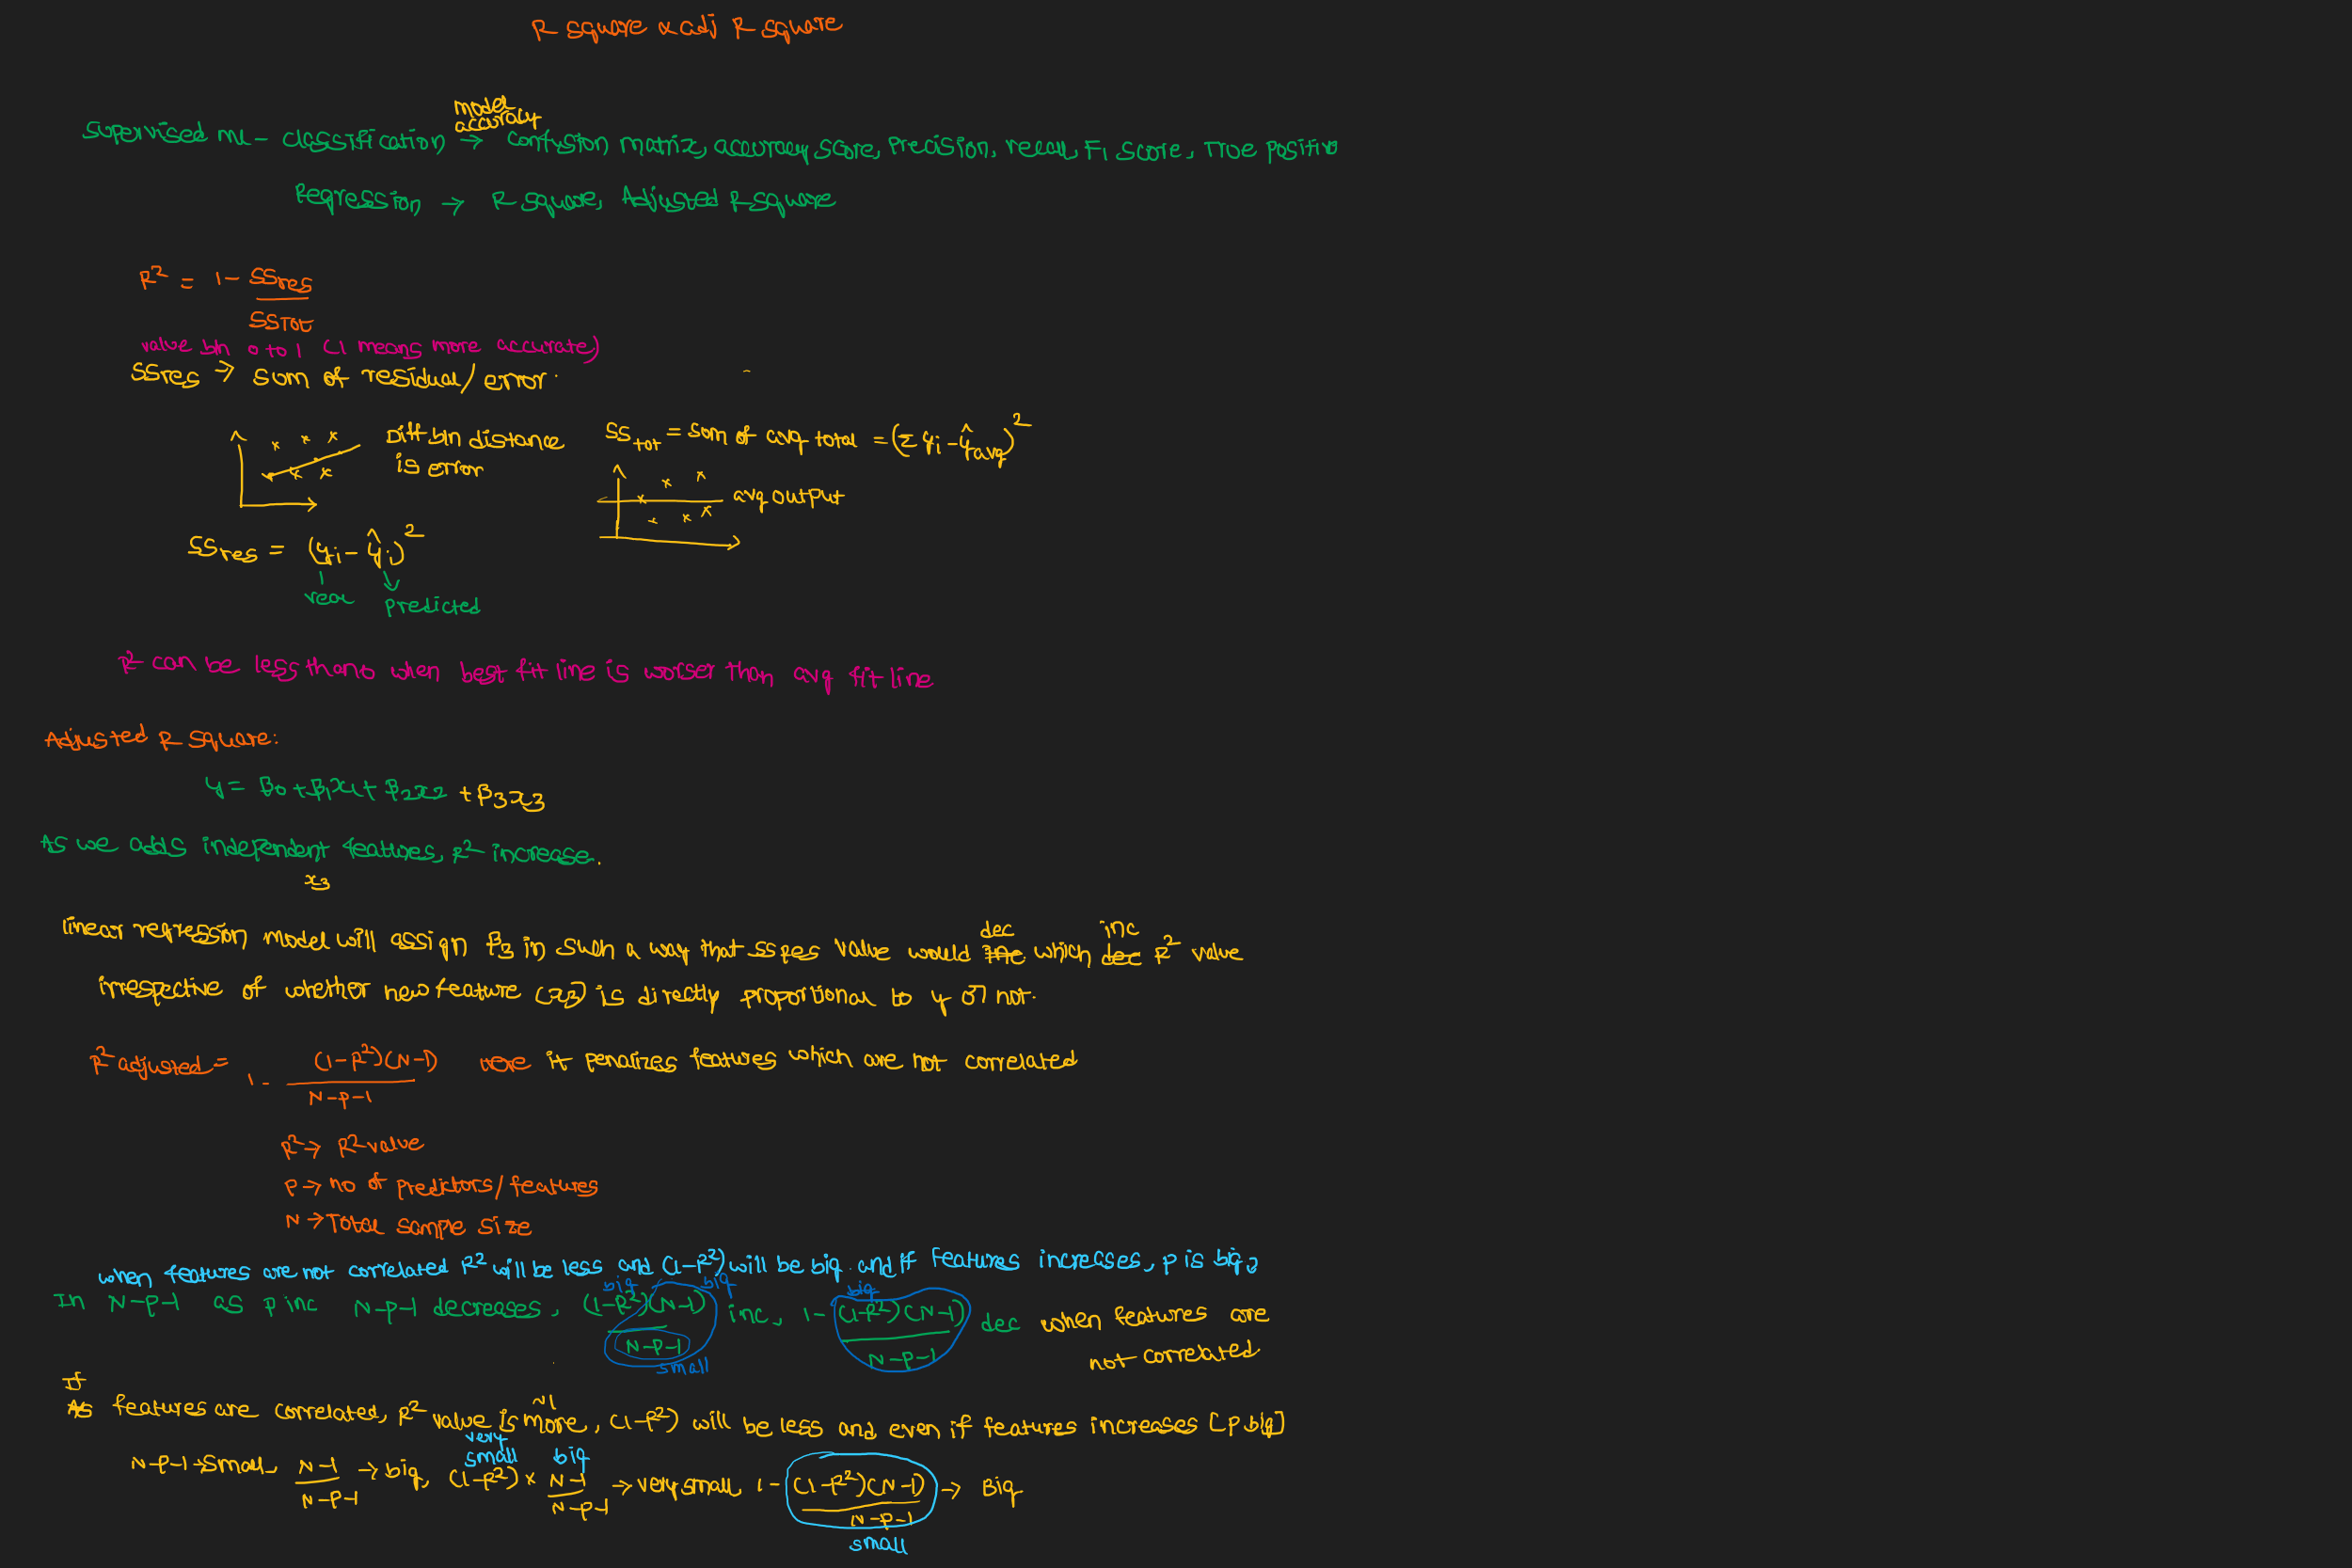 R square & adj R square
model
accuracy
Supervised ML - Classification → Confusion matrix, accuracy score, Precision, recall, F1 score, True positive
Regression → R Square, Adjusted R Square
R² = 1 - SSres
SSTot
value b/n 0 to 1 (1 means more accurate)
SSres → sum of residual/error.
Diff b/n distance
is error
SS tot = sum of avg total = (Σ yi - ŷavg)²
avg output
SSres = (yi - ŷi)²
real predicted
R² can be less than 0 when best fit line is worser than avg fit line
Adjusted R Square:
y = β0 + β1x1 + β2x2 + β3x3
As we adds independent features, R² increase.
x3
dec inc
linear regression model will assign β3 in such a way that SSRes value would inc. which dec R² value
irrespective of whether new feature (x3) is directly proportional to y or not.
R² adjusted = 1 - (1-R²)(N-1) Here it penalizes features which are not correlated
N-P-1
R² → R² value
P → no of predictors/features
N → Total sample size
when features are not correlated R² will be less and (1-R²) will be big. and if features increases, p is big,
big big big
In N-P-1 as P inc N-P-1 decreases, (1-R²)(N-1) inc, 1 - (1-R²)(N-1) dec when features are
N-P-1 N-P-1 not correlated
small
If
As features are correlated, R² value is more, (1-R²) will be less and even if features increases [P big]
~1
very
small big
N-P-1 → small, N-1 → big, (1-R²) × N-1 → very small, 1 - (1-R²)(N-1) → Big
N-P-1 N-P-1 N-P-1
small